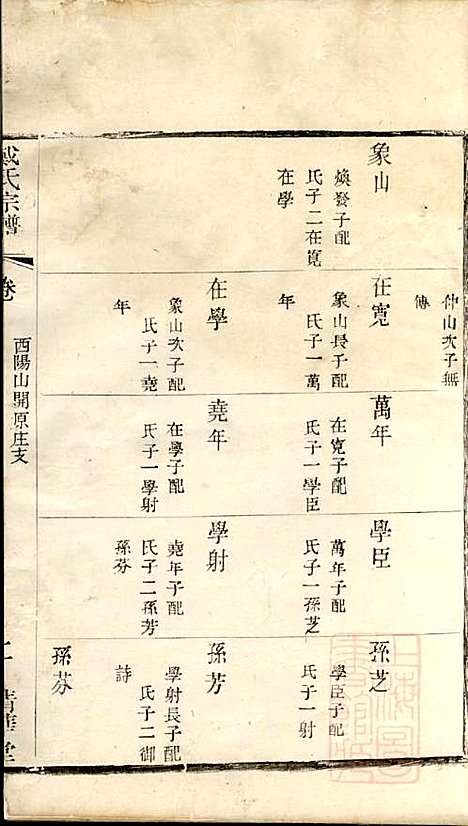 仲山次子無
傳
象山
煥發子配
氏子二在寬
在學
在寬
象山長子配
氏子一萬
年
在學
象山次子配
氏子一堯
年
萬年
在寬子配
氏子一學臣
堯年
在學子配
氏子一學射
學臣
萬年子配
氏子一孫芝
學射
堯年子配
氏子二孫芳
孫芬
孫芝
學臣子配
氏子一射
孫芳
學射長子配
氏子二御
詩
孫芬
戴氏宗譜
卷
酉陽山開原庄支
清華堂